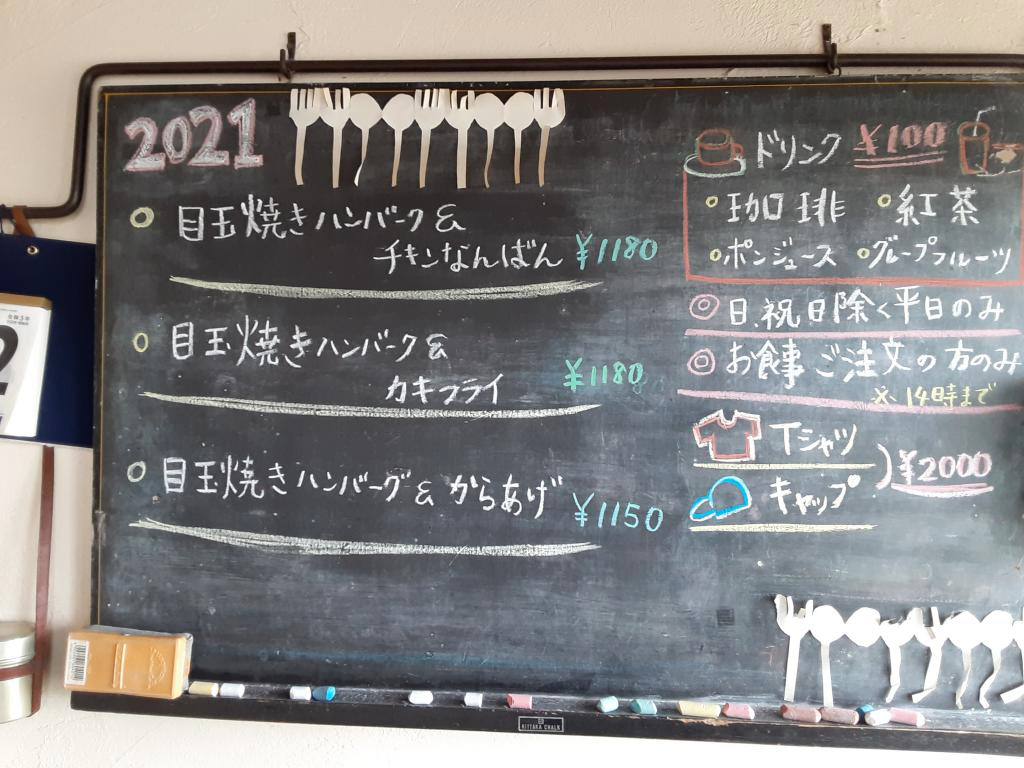 2021
目玉焼きハンバーク&
チキンなんばん ¥1180
目玉焼きハンバーク&
カキフライ ¥1180
目玉焼きハンバーグ& からあげ ¥1150
ドリンク ¥100
珈琲 紅茶
ポンジュース グループフルーツ
◎日、祝日除く平日のみ
◎お食事ご注文の方のみ
※14時まで
Tシャツ
キャップ
¥2000
令和3年
2
KITTAKA CHALK